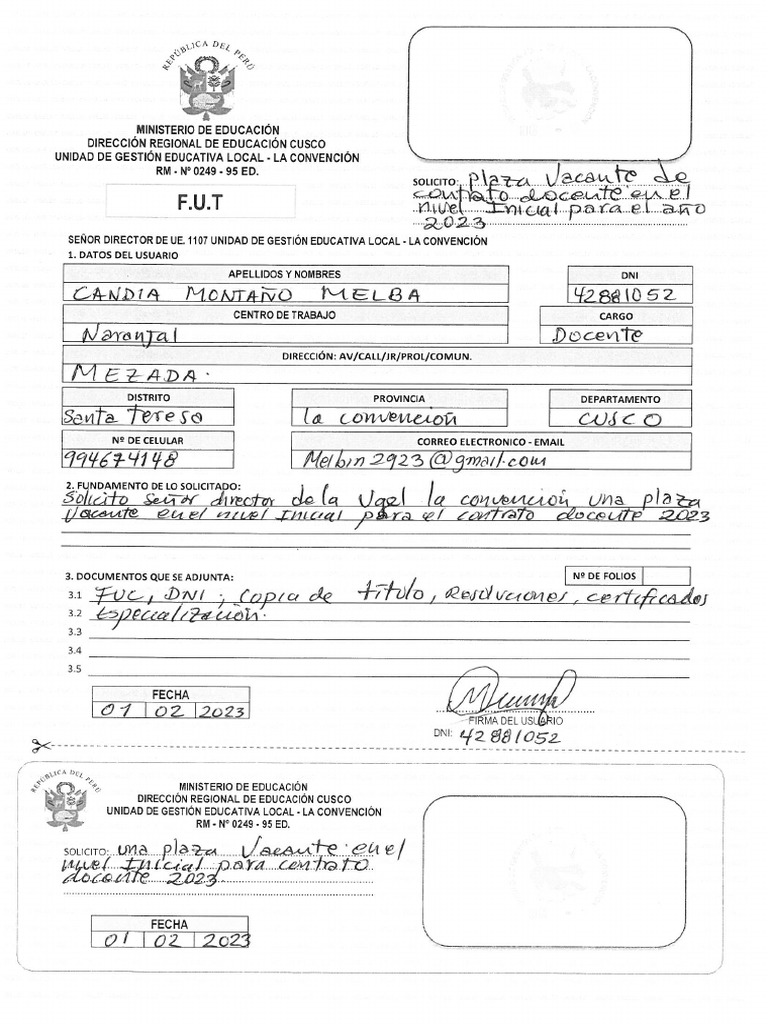 REPÚBLICA DEL PERÚ
MINISTERIO DE EDUCACIÓN
DIRECCIÓN REGIONAL DE EDUCACIÓN CUSCO
UNIDAD DE GESTIÓN EDUCATIVA LOCAL - LA CONVENCIÓN
RM - Nº 0249 - 95 ED.
F.U.T
SOLICITO: plaza Vacante de
contrato docente en el
nivel Inicial para el año
2023
SEÑOR DIRECTOR DE UE. 1107 UNIDAD DE GESTIÓN EDUCATIVA LOCAL - LA CONVENCIÓN
1. DATOS DEL USUARIO
APELLIDOS Y NOMBRES DNI
CANDIA MONTAÑO MELBA 42881052
CENTRO DE TRABAJO CARGO
Naranjal Docente
DIRECCIÓN: AV/CALL/JR/PROL/COMUN.
MEZADA.
DISTRITO PROVINCIA DEPARTAMENTO
Santa Teresa la convención CUSCO
Nº DE CELULAR CORREO ELECTRONICO - EMAIL
994674148 Melbin2923@gmail.com
2. FUNDAMENTO DE LO SOLICITADO:
Solicito Señor director de la Ugel la convención una plaza
Vacante en el nivel Inicial para el contrato docente 2023
3. DOCUMENTOS QUE SE ADJUNTA: Nº DE FOLIOS
3.1 FUC, DNI, copia de título, Resoluciones, certificados
3.2 Especialización.
3.3
3.4
3.5
FECHA
01 02 2023
FIRMA DEL USUARIO
DNI: 42881052
REPÚBLICA DEL PERÚ
MINISTERIO DE EDUCACIÓN
DIRECCIÓN REGIONAL DE EDUCACIÓN CUSCO
UNIDAD DE GESTIÓN EDUCATIVA LOCAL - LA CONVENCIÓN
RM - Nº 0249 - 95 ED.
SOLICITO: una plaza Vacante en el
nivel Inicial para contrato
docente 2023
FECHA
01 02 2023